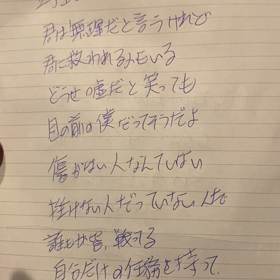 君は無理だと言うけれど
君に救われる人もいる
どうせ嘘だと笑っても
目の前の僕だってそうだよ
傷がない人なんていない
挫けない人だっていない
誰もが皆、戦ってる
自分だけの任務を持って